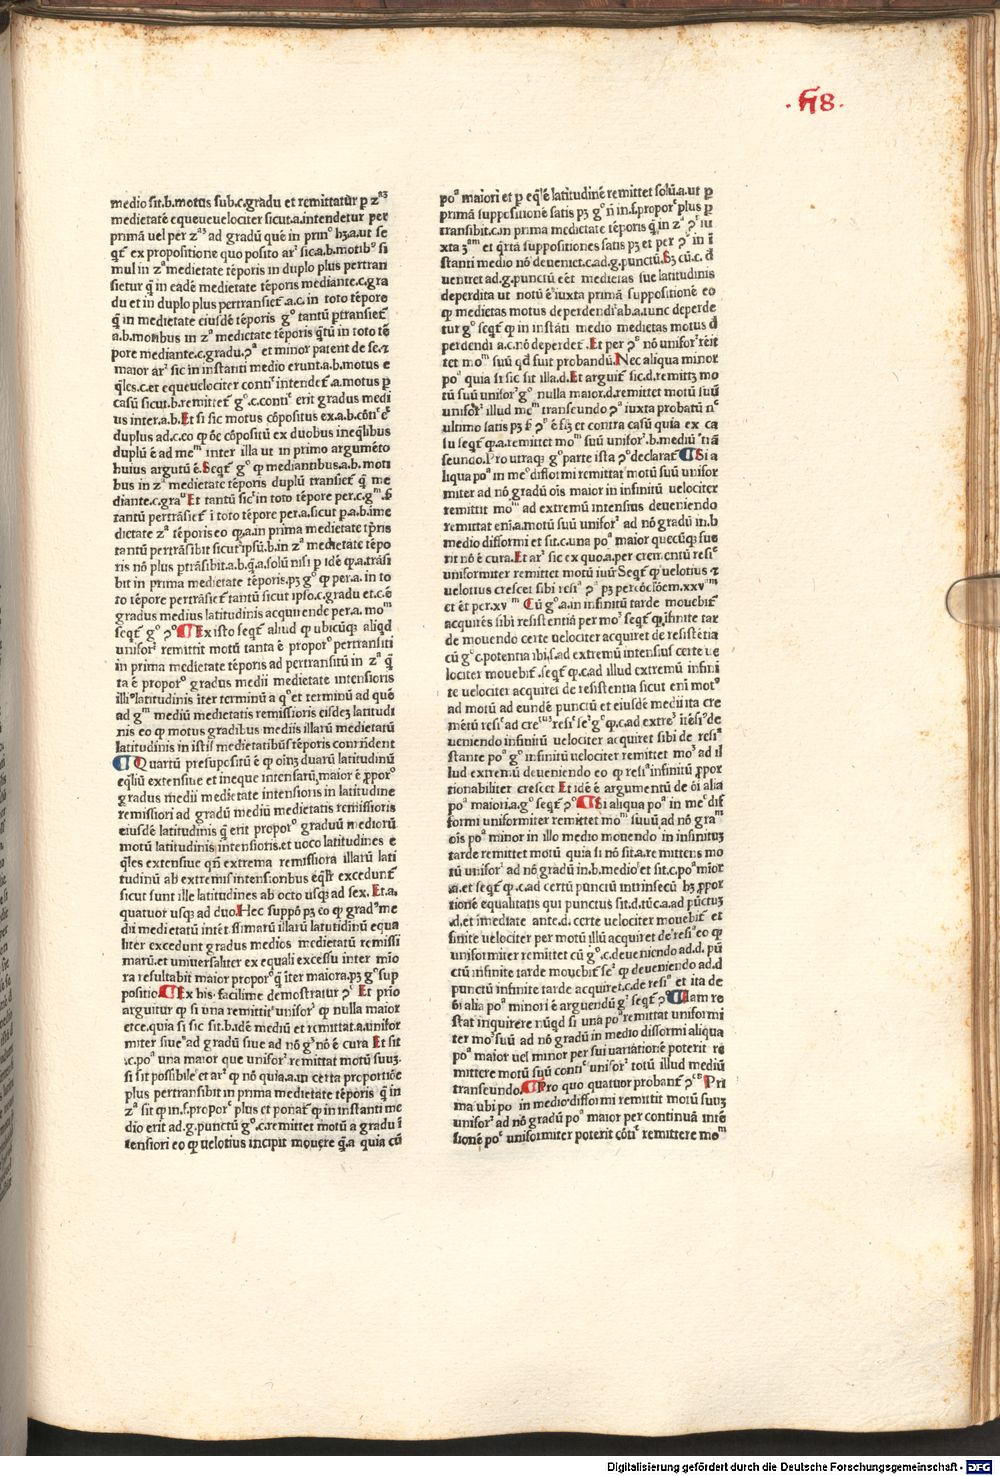 medio sit.b.motus sub.c.gradu et remittatur p zᵃᵐ
medietatē equeueuelociter sicut.a.intendetur per
primā uel per zᵃᵐ ad gradū quē in prinᵒ hꝫ.a.ut se
qt̄ ex propositione quo posito arʳ sic.a.b.motibꝰ si
mul in zᵃ medietate tēporis in duplo plus pertran
sietur ꝙ̄ in eadē medietate tēporis mediante.c.gra
du et in duplo plus pertransiet̄.a.c. in toto tēpore
ꝙ̄ in medietate eiusdē tēporis gᵒ tantū ptransiet̄
a.b.motibus in zᵃ medietate tēporis qtū in toto tē
pore mediante.c.gradu.ꝯᵃ et minor patent de se.⁊
maior arʳ sic in instanti medio erunt.a.b.motus e
q̄les.c.et equeuelociter contiᵉ intendet̄.a.motus p
casū sicut.b.remittet̄ gᵒ.c.contiᵉ erit gradus medi
us inter.a.b.Et si sic motus cōpositus ex.a.b.cōtiᵉ eʳ
duplus ad.c.eo ꝙ ōe cōpositū ex duobus ineq̄libus
duplū ē ad meᵐ inter illa ut in primo argumēto
huius argutū ē.Seqt̄ gᵒ ꝙ mediantibus.a.b. moti
bus in zᵃ medietate tēporis duplū transiet̄ ꝙ̄ me
diante.c.graᵘ Et tantū sicᵗ in toto tēpore per.c.gᵐ.s̄
tantū pertrāsiet̄ ī toto tēpore per.a.sicut p.a.b.īme
dictate zᵃ tēporis eo ꝙ.a.in prima medietate tp̄ris
tantū pertrāsibit sicut ipsū.b.in zᵃ medietate tēpo
ris nō plus ptrāsibit.a.b.ꝙ̄.a.solū nisi p idē ꝙ.a.trāsi
bit in prima medietate tēporis.pꝫ gᵒ ꝙ per.a. in to
to tēpore pertrāsiet̄ tantū sicut ipso.c.gradu et.c.ē
gradus medius latitudinis acquirende per.a. moᵐ
seqt̄ gᵒ ꝯᵒ ¶Ex isto seqt̄ aliud ꝙ ubicūqꝫ aliqd
unisorʳ remittit motū tanta ē proporᵒ pertransiti
in prima medietate tēporis ad pertransitū in zᵃ ꝙ̄
ta ē proporᵒ gradus medii medietatis intensioris
illiᵘˢ latitudinis īter terminū a qᵒ et terminū ad quē
ad gᵐ mediū medietatis remissioris eisdeꝫ latitudi
nis eo ꝙ motus gradibus mediis illarū medietatū
latitudinis in istis medietatibꝰ tēporis conrn̄dent
¶Quartū presupositū ē ꝙ oīnꝫ duarū latitudinū
eq̄liū extensiue et ineque intensarū,maior ē ꝓporᵒ
gradus medii medietate intensioris in latitudine
remissiori ad gradū mediū medietatis remissioris
eiusdē latitudinis ꝙ̄ erit proporᵒ graduū mediorū
motū latitudinis intensioris.et uoco latitudines e
q̄les extensiue qn̄ extrema remissiora illarū lati
tudinū ab extremis intensioribus eq̄lr̄ excedunt̄
sicut sunt ille latitudines ab octo usqꝫ ad sex. Et.a.
quatuor usqꝫ ad duo.Hec suppō pꝫ eo ꝙ gradꝰ me
dii medietatū intēsissimarū illarū latitudinū equa
liter excedunt gradus medios medietatū remissi
marū.et uniuersaliter ex equali excessu inter mio
ra resultabit maior proporᵒ ꝙ̄ īter maiora.pꝫ gᵒ sup
positio.¶Ex his facilime demostratur ꝯᵒ Et prīo
arguitur ꝙ si una remittitᵗ unisorʳ ꝙ nulla maior
etce.quia si sic sit.b.idē mediū et remittat.a.unifor
miter siueᵃ ad gradū siue ad nō gᵐ nō ē cura Et sit
.c.poᵃ una maior que unisorʳ remittat motū suuꝫ.
si sit possibile et arʳ ꝙ nō quia.a.in certa proportiōe
plus pertransibit in prima medietate tēporis ꝙ̄ in
zᵃ sit ꝙ in.f.proporᵉ plus et ponat̄ ꝙ in instanti me
dio erit ad.g.punctū gᵒ.c.remittet motū a gradu ī
tensiori eo ꝙ uelotius incipit mouere ꝙ̄.a quia cū
.h8.
poᵃ maiori et p eq̄lē latitudinē remittet solū.a.ut p
primā suppositionē satis pꝫ gᵒ n̄ in.f.proporᵉ plus p
transibit.c.in prima medietate tēporis ꝙ̄ in zᵃ ꝯᵃ iu
xta 3ᵃᵐ et q̄rtā suppositiones satis pꝫ et per ꝯⁿˢ in ī
stanti medio nō deueniet.c.ad.g.punctū.Sꝫ cū.c. d̄
uenret ad.g.punctū eēt medietas sue latitudinis
deperdita ut notū ē iuxta primā suppositionē eo
ꝙ medietas motus deperdendi ab.a.tunc deperde
tur gᵒ seqt̄ ꝙ in instāti medio medietas motus d̄
perdendi a.c.nō deperdet̄ .Et per ꝯⁿˢ nō unisorʳ reīt
tet moᵐ suū qd̄ fuit probandū.Nec aliqua minor
poᵃ quia si sic sit illa.d.Et arguit̄ sic.d.remittꝫ mo
tū suū unisorʳ gᵒ nulla maior.d.remittet motū suū
unisorʳ illud meᵐ transeundo ꝯᵃ iuxta probatū nᶜ
ultimo satis pꝫ s̄ ꝯⁿˢ ē fꝫ et contra casū quia ex ca
su seqt̄ ꝙ.a.remittet moᵐ suū unisorʳ.b.mediū trā
seundo.Pro utraqꝫ gᵒ parte ista ꝯᵒ declarat̄ ¶Si a
liqua poᵃ in meᵒ difformi remittat motū suū unifor
miter ad nō gradū oīs maior in infinitū uelociter
remittit moᵐ ad extremū intensius deueniendo
remittat enī.a.motū suū unisorʳ ad nō gradū in.b
medio difformi et sit.c.una poᵃ maior quecūqꝫ fue
rit nō ē cura.Et arʳ sic ex quo.a.per crem.entū resiᵉ
uniformiter remittet motū suū Seqt̄ ꝙ uelotius ⁊
uelotius crescet sibi resiᵃ ꝯᵃ pꝫ per cōclōem.xxvᵃᵐ
et ēt per.xvᵃᵐ Cū gᵒ.a.in infinitū tarde mouebit̄
acquirēs sibi resistentiā per moᵐ seqt̄ ꝙ īfinite tar
de mouendo certe uelociter acquiret de resistētia
cū gᵒ c.potentia ibi,s.ad extremū intensius certe ue
lociter mouebit̄.seqt̄ ꝙ.c.ad illud extremū infini
te uelociter acquiret de resistentia sicut enī motꝰ
ad motū ad eundē punctū et eiusdē medii ita cre
mētū resiᵉ ad creᵐᵗᵘᵐ resiᵉ seᵠ gᵒ ꝙ.c.ad extreᵐ ītēsiꝰ de
ueniendo infinitū uelociter acquiret sibi de resiᵃ
stante poᵃ gᵒ infinitū uelociter remittet moᵐ ad il
lud extremū deueniendo eo ꝙ resiᵃ infinitū ꝓpor
tionabiliter crescet Et idē ē argumentū de oī alia
poᵃ maiori.a.gᵒ seqt̄ ꝯᵒ ¶Si aliqua poᵃ in meᵒ dif
formi uniformiter remittet moᵐ suuū ad nō graᵐ
oīs poᵃ minor in illo medio mouendo in infinitꝫ
tarde remittet motū quia si nō sit.a.remittens mo
tū unisorʳ ad nō gradū in.b.medio et sit.c.poᵃ mīor
.a.et seqt̄ ꝙ.c.ad certū punctū intrinsecū hꝫ ꝓpor
tionē equalitatis qui punctus sit.d.tūc.a.ad pūctuꝫ
.d.et imediate ante.d. certe uelociter mouebit̄ et
finite uelociter per motū illū acquiret de resiᵃ eo ꝙ
uniformiter remittet cū gᵒ.c.deueniendo ad.d. pū
ctū infinite tarde mouebit̄ seᵠ ꝙ deueniendo ad.d
punctū infinite tarde acquiret.c.de resiᵃ et ita de
oī alia poᵃ minori ē arguendū gᵒ seqt̄ ꝯᵒ ¶Iam re
stat inquirere nūqd̄ si una poᵃ remittat uniformi
ter moᵐ suū ad nō gradū in medio difformi aliqua
poᵃ maior uel minor per sui uariationē poterit re
mittere motū suū contiᵉ unisorʳ totū illud mediū
transeundo.¶Pro quo quatuor probant̄ ꝯᵉˢ Pri
ma ubi po in medio difformi remittit motū suuꝫ
unisorʳ ad nō gradū poᵃ maior per continuā intē
sionē poᵉ uniformiter poterit cōtiᵉ remittere moᵐ
Digitalisierung gefördert durch die Deutsche Forschungsgemeinschaft - DFG